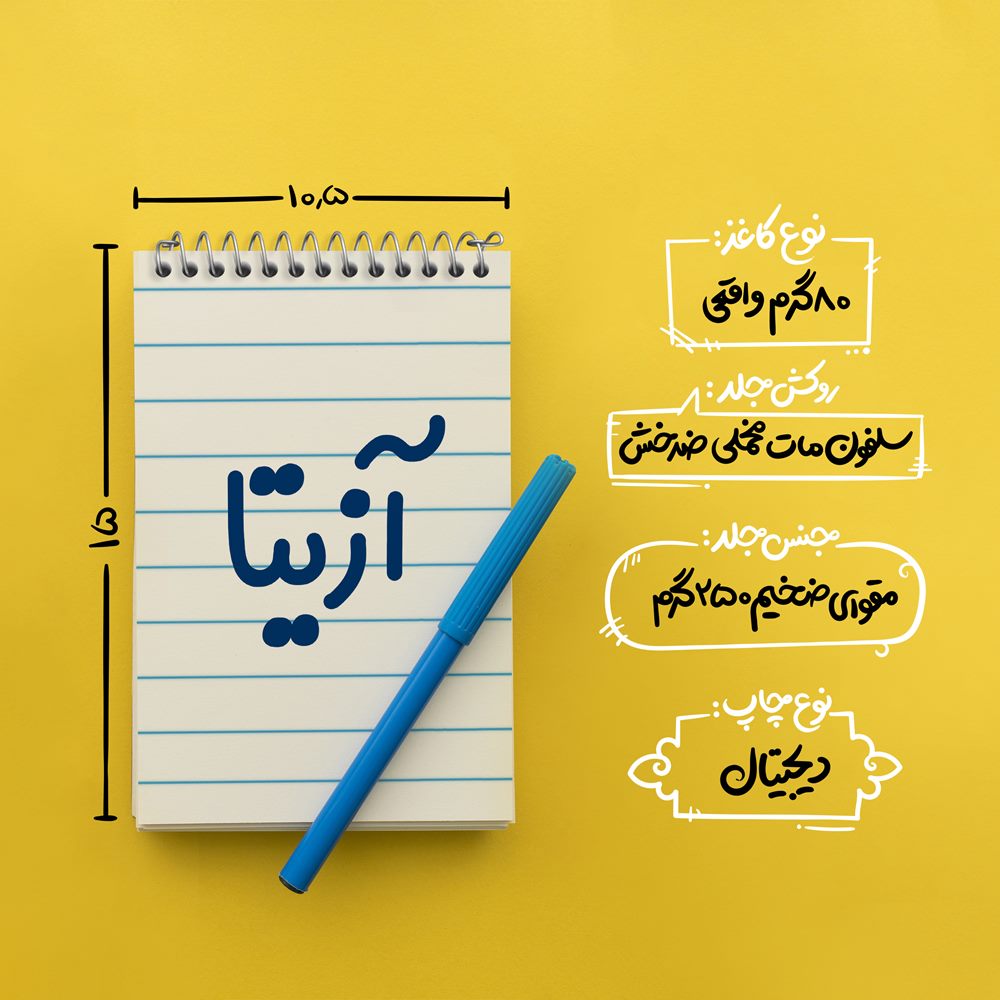 ۱۰٫۵
۱۵
آزیتا
نوع کاغذ:
۸۰ گرم واقعی
روکش جلد:
سلفون مات مخملی ضدخش
جنس جلد:
مقوای ضخیم ۲۵۰ گرم
نوع چاپ:
دیجیتال